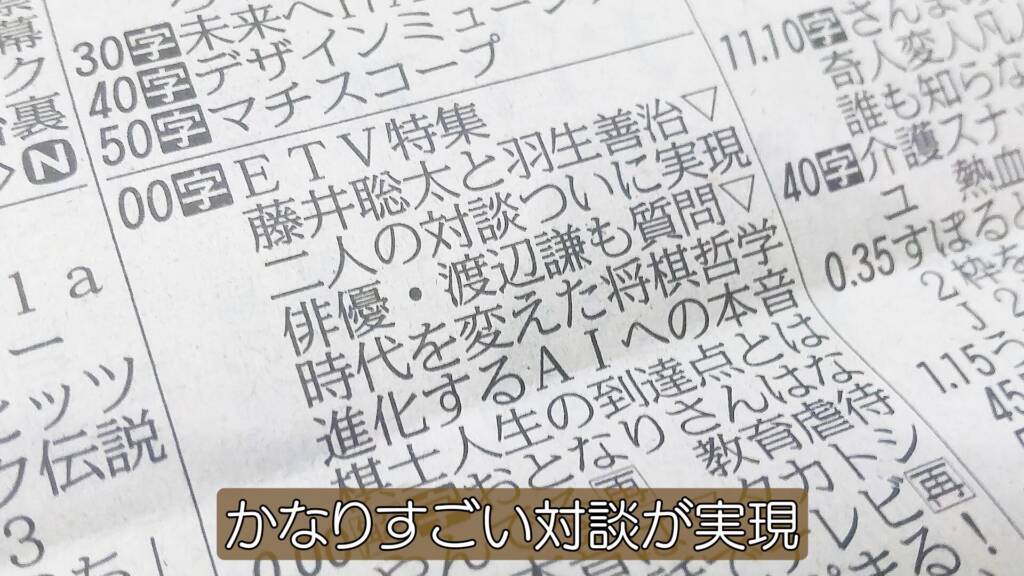 幕
ク
裏
N
1a
ー
ヒッツ
フ伝説
3
30字未来へ
40字デザインミューン
50字マチスコープ
00字ETV特集
藤井聡太と羽生善治▽
二人の対談ついに実現
俳優・渡辺謙も質問▽
時代を変えた将棋哲学
進化するAIへの本音
棋士人生の到達点とは
おとなりさんはな
教育虐待
再
11.10字さんま
奇人変人凡人
誰も知らな
40字介護スナッ
ユ 熱血
0.35すぽると
2枠を
J2
1.15う
45
かなりすごい対談が実現